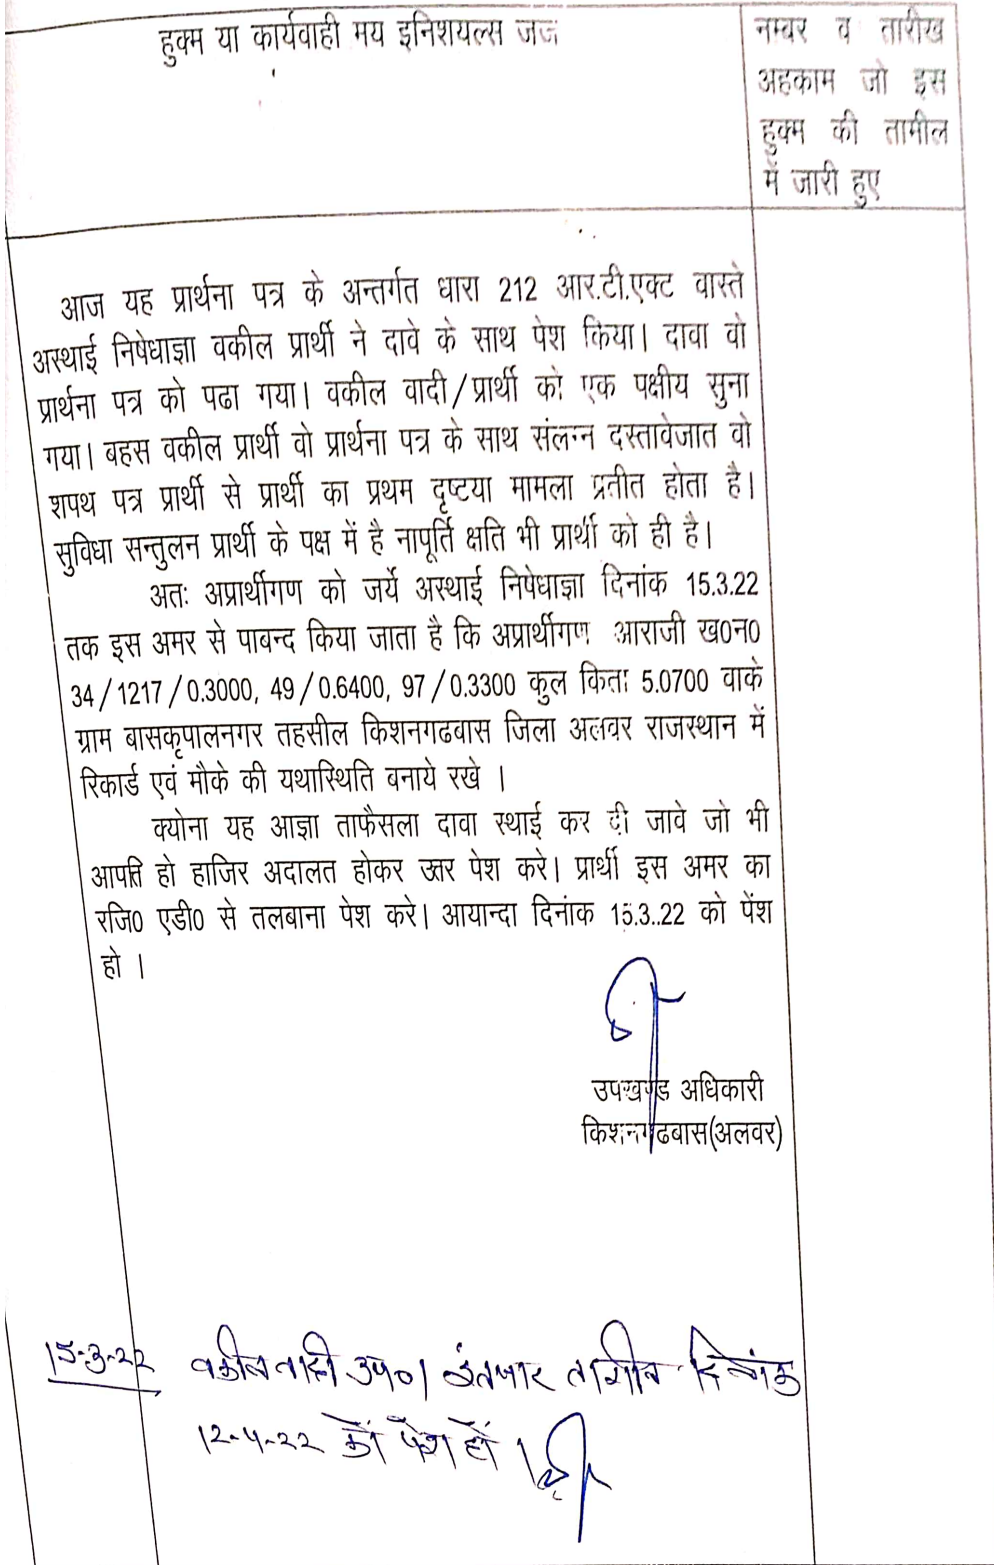 हुक्म या कार्यवाही मय इनिशयल्स जज
नम्बर व तारीख
अहकाम जो इस
हुक्म की तामील
में जारी हुए
आज यह प्रार्थना पत्र के अन्तर्गत धारा 212 आर.टी.एक्ट वास्ते
अस्थाई निषेधाज्ञा वकील प्रार्थी ने दावे के साथ पेश किया। दावा वो
प्रार्थना पत्र को पढा गया। वकील वादी/प्रार्थी को एक पक्षीय सुना
गया। बहस वकील प्रार्थी वो प्रार्थना पत्र के साथ संलग्न दस्तावेजात वो
शपथ पत्र प्रार्थी से प्रार्थी का प्रथम दृष्टया मामला प्रतीत होता है।
सुविधा सन्तुलन प्रार्थी के पक्ष में है नापूर्ति क्षति भी प्रार्थी को ही है।
अतः अप्रार्थीगण को जर्ये अस्थाई निषेधाज्ञा दिनांक 15.3.22
तक इस अमर से पाबन्द किया जाता है कि अप्रार्थीगण आराजी ख0न0
34/1217/0.3000, 49/0.6400, 97/0.3300 कुल किताः 5.0700 वाके
ग्राम बासकृपालनगर तहसील किशनगढबास जिला अलवर राजस्थान में
रिकार्ड एवं मौके की यथास्थिति बनाये रखे ।
क्योना यह आज्ञा ताफैसला दावा स्थाई कर दी जावे जो भी
आपत्ति हो हाजिर अदालत होकर उत्तर पेश करे। प्रार्थी इस अमर का
रजि0 एडी0 से तलबाना पेश करे। आयान्दा दिनांक 15.3..22 को पेंश
हो ।
उपखण्ड अधिकारी
किशनगढबास(अलवर)
15-3-22 वकील वादी उप०। इंतजार तामील दिनांक
12-4-22 को पेश हों ।